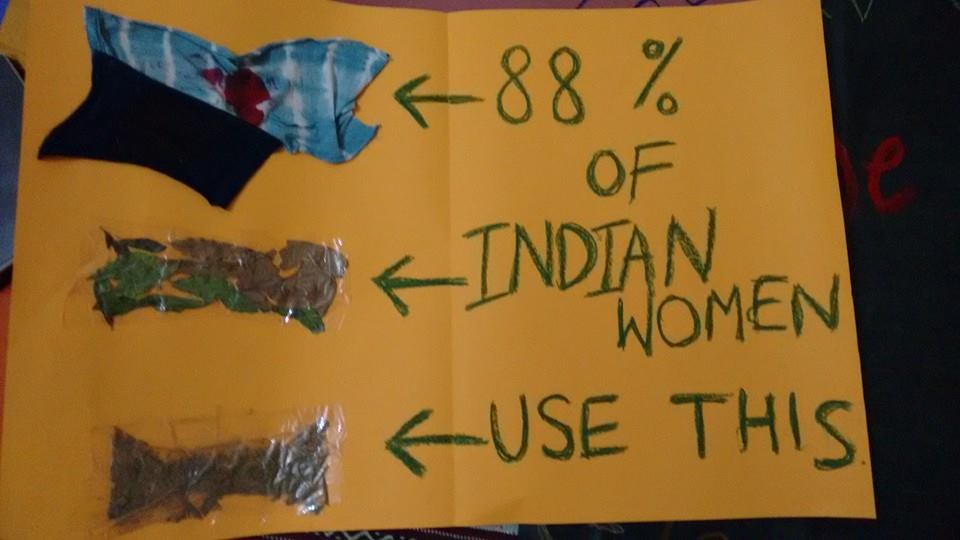 88 %
OF
INDIAN
WOMEN
USE THIS.